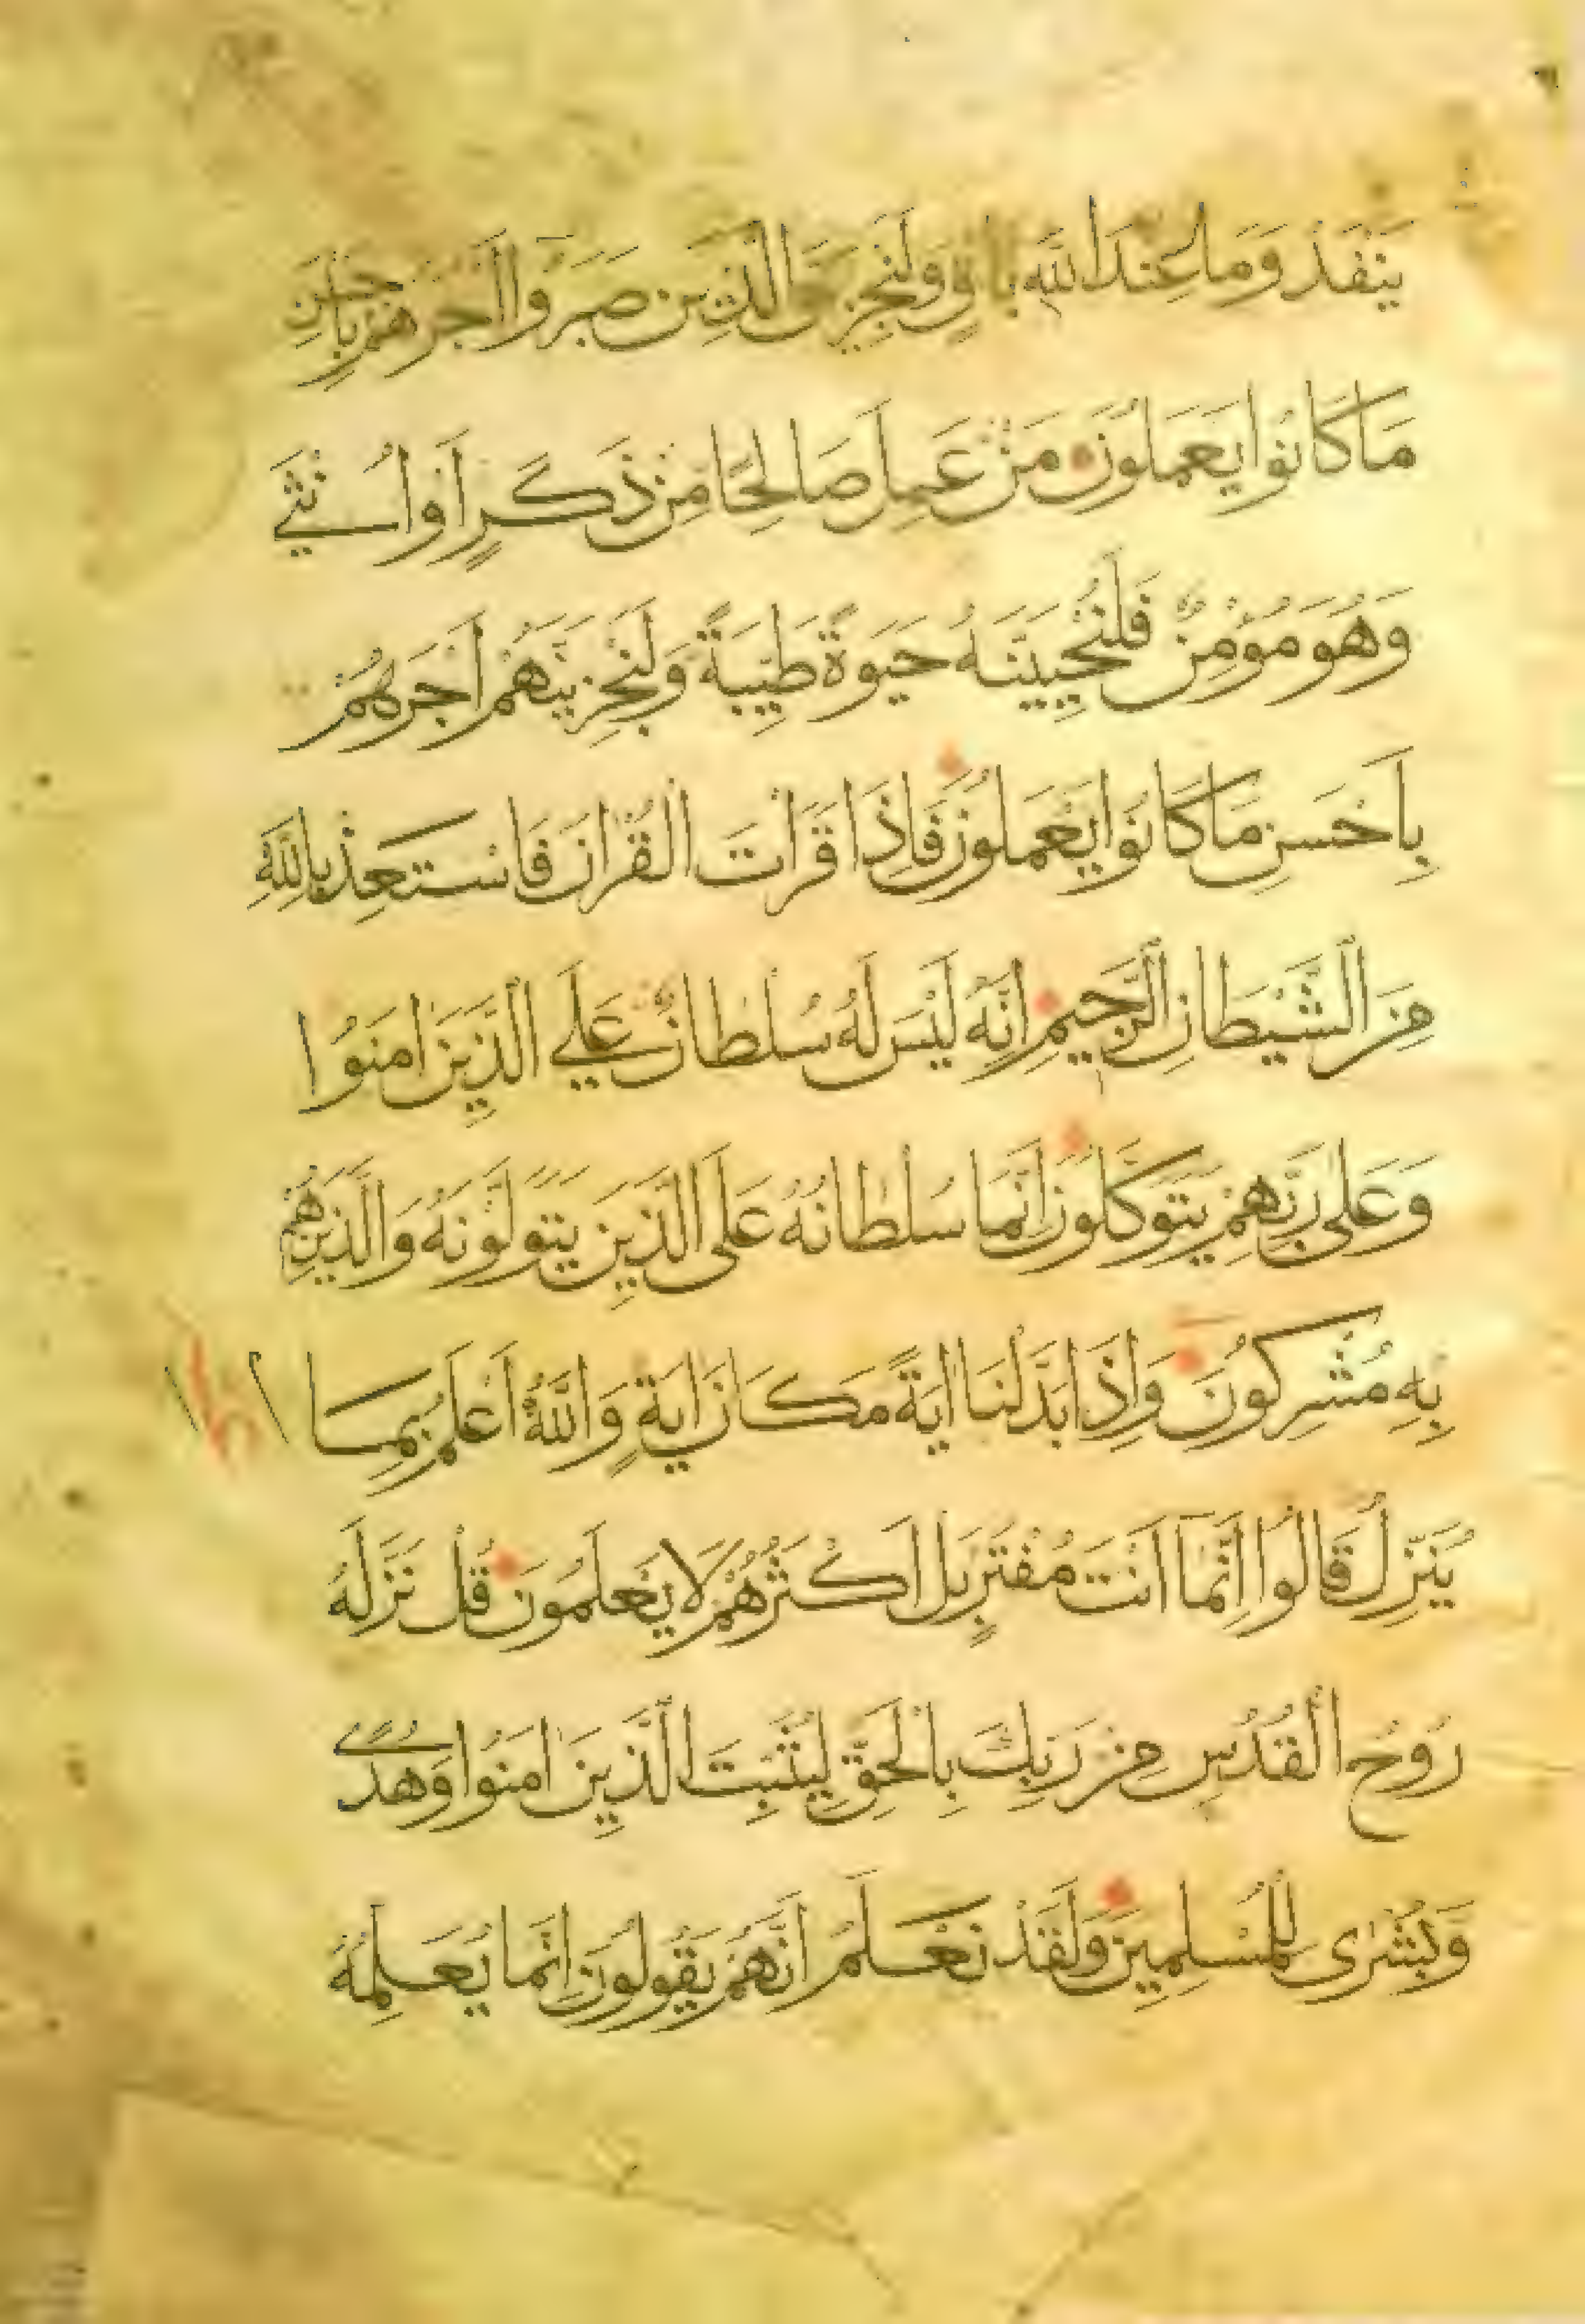 يَنْفَدُ وَمَا عِنْدَ اللَّهِ بَاقٍ وَلَنَجْزِيَنَّ الَّذِينَ صَبَرُوا أَجْرَهُمْ بِأَحْسَنِ
مَا كَانُوا يَعْمَلُونَ مَنْ عَمِلَ صَالِحًا مِنْ ذَكَرٍ أَوْ أُنْثَى
وَهُوَ مُؤْمِنٌ فَلَنُحْيِيَنَّهُ حَيَوةً طَيِّبَةً وَلَنَجْزِيَنَّهُمْ أَجْرَهُمْ
بِأَحْسَنِ مَا كَانُوا يَعْمَلُونَ فَإِذَا قَرَأْتَ الْقُرْانَ فَاسْتَعِذْ بِاللَّهِ
مِنَ الشَّيْطَانِ الرَّجِيمِ إِنَّهُ لَيْسَ لَهُ سُلْطَانٌ عَلَى الَّذِينَ امَنُوا
وَعَلَى رَبِّهِمْ يَتَوَكَّلُونَ إِنَّمَا سُلْطَانُهُ عَلَى الَّذِينَ يَتَوَلَّوْنَهُ وَالَّذِينَ هُمْ
بِهِ مُشْرِكُونَ وَإِذَا بَدَّلْنَا ايَةً مَكَانَ ايَةٍ وَاللَّهُ أَعْلَمُ بِمَا
يُنَزِّلُ قَالُوا إِنَّمَا أَنْتَ مُفْتَرٍ بَلْ أَكْثَرُهُمْ لَا يَعْلَمُونَ قُلْ نَزَّلَهُ
رُوحُ الْقُدُسِ مِنْ رَبِّكَ بِالْحَقِّ لِيُثَبِّتَ الَّذِينَ امَنُوا وَهُدًى
وَبُشْرَى لِلْمُسْلِمِينَ وَلَقَدْ نَعْلَمُ أَنَّهُمْ يَقُولُونَ إِنَّمَا يُعَلِّمُهُ